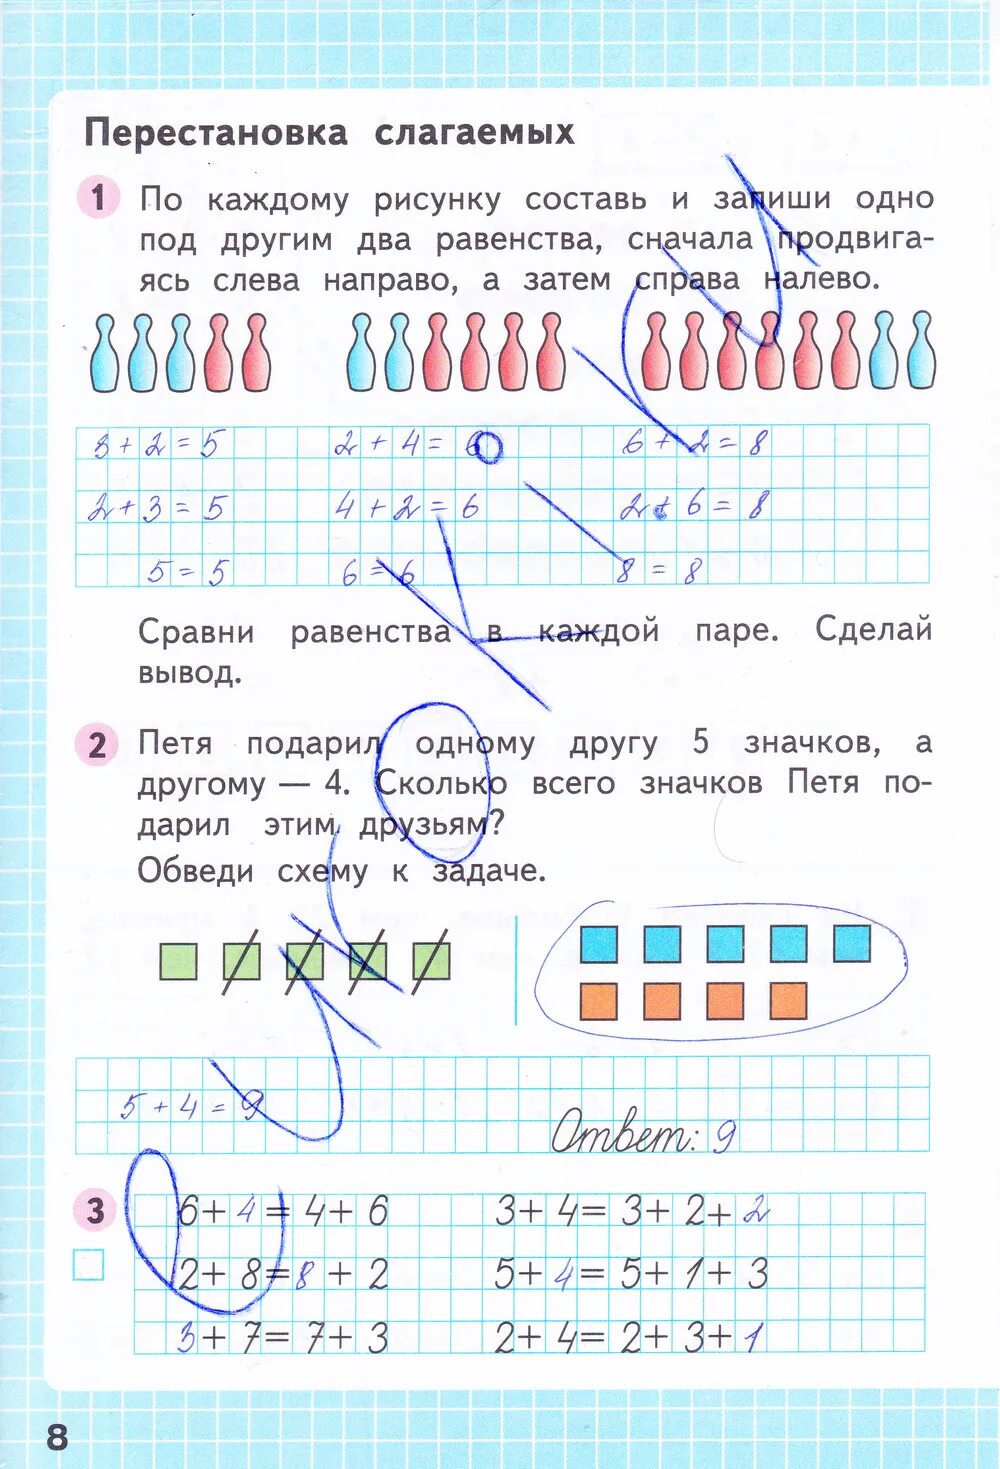 Перестановка слагаемых
1 По каждому рисунку составь и запиши одно
под другим два равенства, сначала продвига-
ясь слева направо, а затем справа налево.
3 + 2 = 5 2 + 4 = 6 6 + 2 = 8
2 + 3 = 5 4 + 2 = 6 2 + 6 = 8
5 = 5 6 = 6 8 = 8
Сравни равенства в каждой паре. Сделай
вывод.
2 Петя подарил одному другу 5 значков, а
другому — 4. Сколько всего значков Петя по-
дарил этим друзьям?
Обведи схему к задаче.
5 + 4 = 9
Ответ: 9
3 6 + 4 = 4 + 6 3 + 4 = 3 + 2 + 2
2 + 8 = 8 + 2 5 + 4 = 5 + 1 + 3
3 + 7 = 7 + 3 2 + 4 = 2 + 3 + 1
8